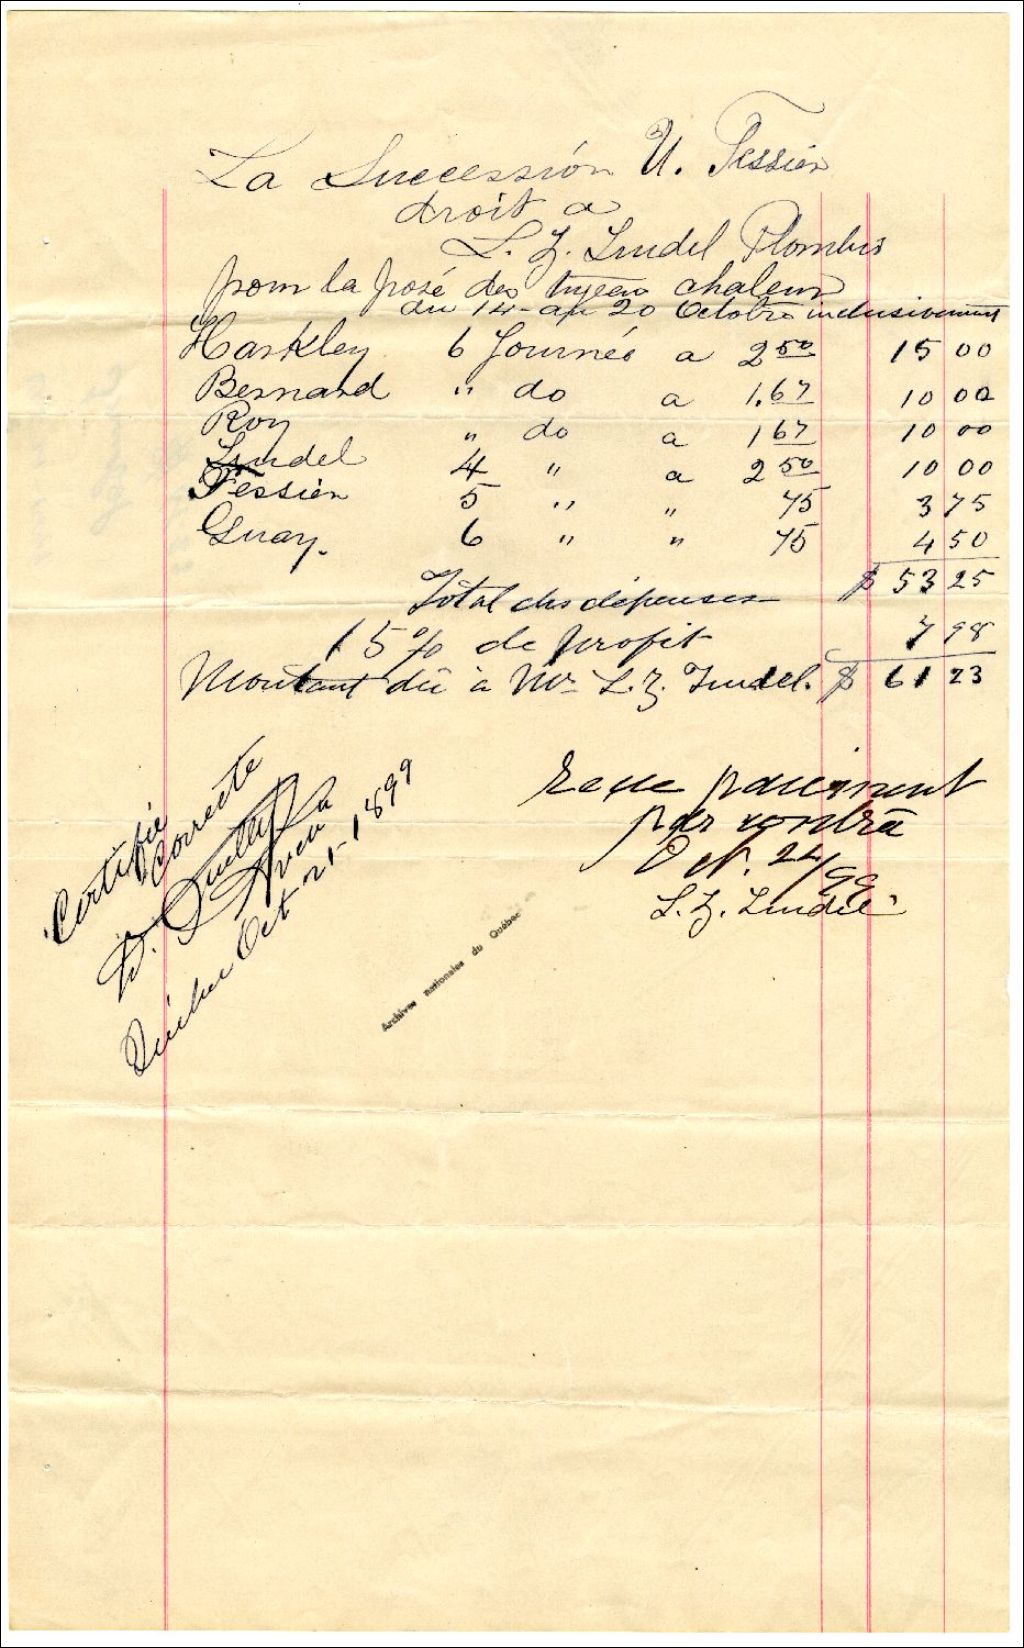 La Succession U. Tessier
droit a
L. Z. Trudel Plombier
pour la posé des tuyeau chaleur
du 14 - au 20 Octobre inclusivement
Harkley 6 Journés a 2 50 15 00
Bernard " do a 1.67 10 00
Roy " do a 1 67 10 00
Trudel 4 " a 2 50 10 00
Tessier 5 " " 75 3 75
Guay. 6 " " 75 4 50
Total des dépenses $ 53 25
15 % de profit 7 98
Montant dû à Mr L. Z. Trudel. $ 61 23
Certifié
Correcte
Oct 21 - 1899
paiement
par
Oct. 24/99
L. Z. Trudel
Archives nationales du Québec